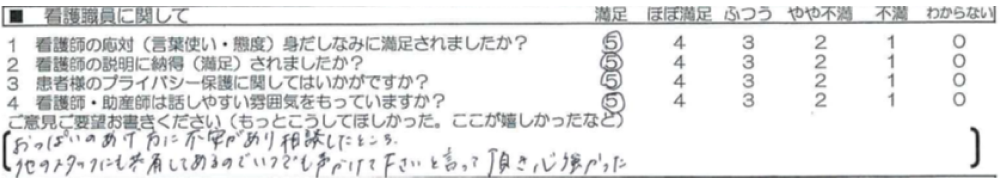 ■ 看護職員に関して 満足 ほぼ満足 ふつう やや不満 不満 わからない
1 看護師の応対（言葉使い・態度）身だしなみに満足されましたか？ 5 4 3 2 1 0
2 看護師の説明に納得（満足）されましたか？ 5 4 3 2 1 0
3 患者様のプライバシー保護に関してはいかがですか？ 5 4 3 2 1 0
4 看護師・助産師は話しやすい雰囲気をもっていますか？ 5 4 3 2 1 0
ご意見ご要望お書きください（もっとこうしてほしかった。ここが嬉しかったなど）
おっぱいのあげ方に不安があり相談したところ、
他のスタッフにも共有してあるのでいつでも声かけて下さいと言って頂き心強かった